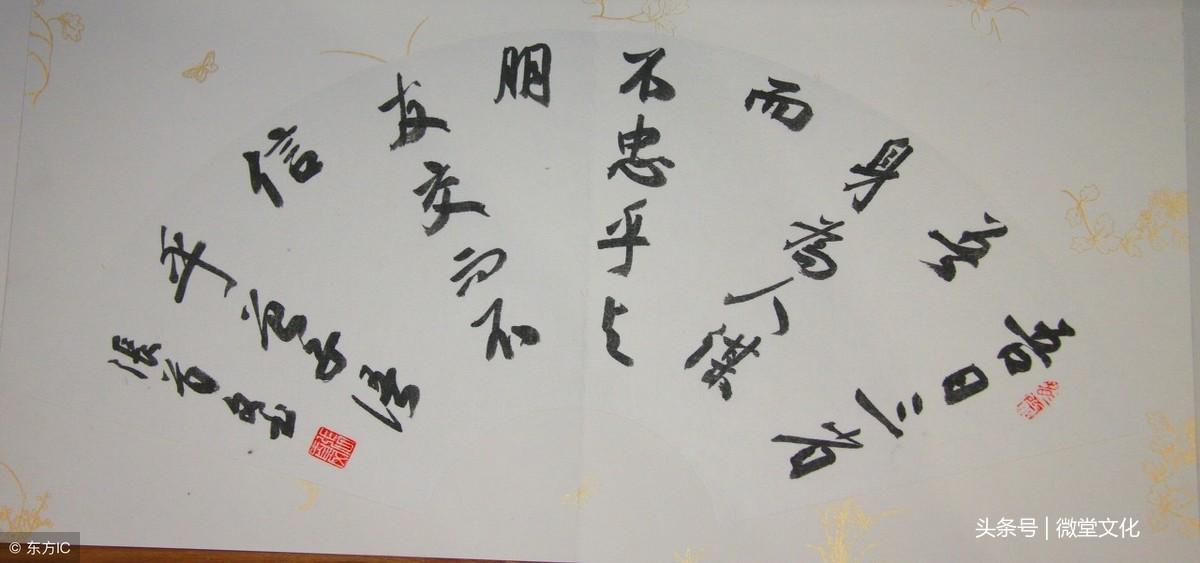 吾日三省
吾
身為人謀
而
不忠乎与
朋
友交而不
信
乎
头条号 | 微堂文化
© 东方IC